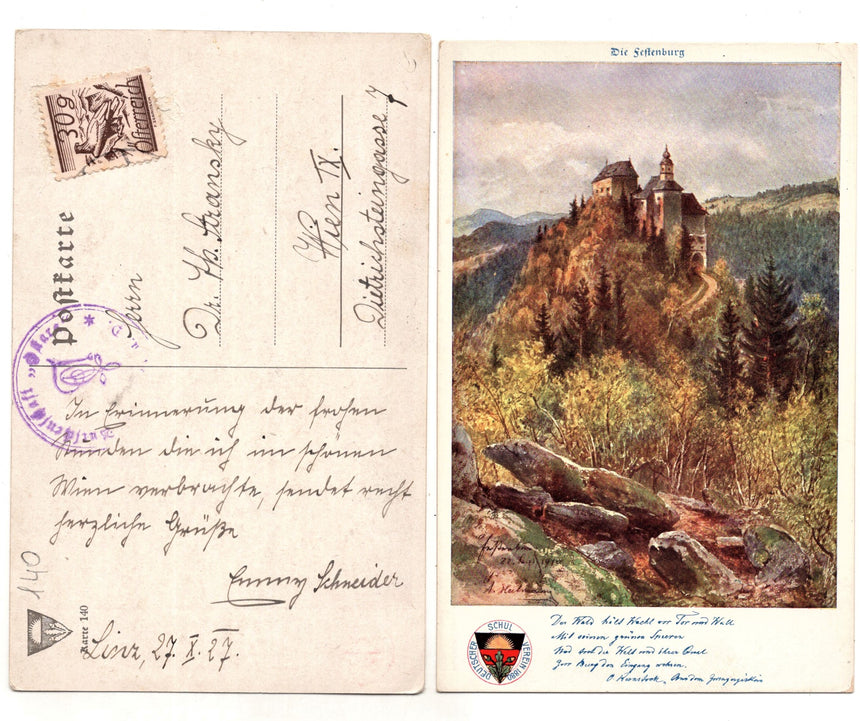 30 g
Österreich
Postkarte
Herrn
Dr. Th. Stransky
Wien IX.
Dietrichsteingasse 7
Burschenschaft
In Erinnerung der frohen
Stunden die ich im schönen
Wien verbrachte, sendet recht
herzliche Grüße
Emmy Schneider
Linz, 27. X. 27.
140
Karte 140
Die Festenburg
DEUTSCHER SCHUL VEREIN 1880
Der Wald hält Wacht vor Tor und Wall
Mit seinen grünen Speeren
Und die Welt und
Zur Burg den Eingang wehren.
O. Kernstock, Aus dem Zwingergärtlein